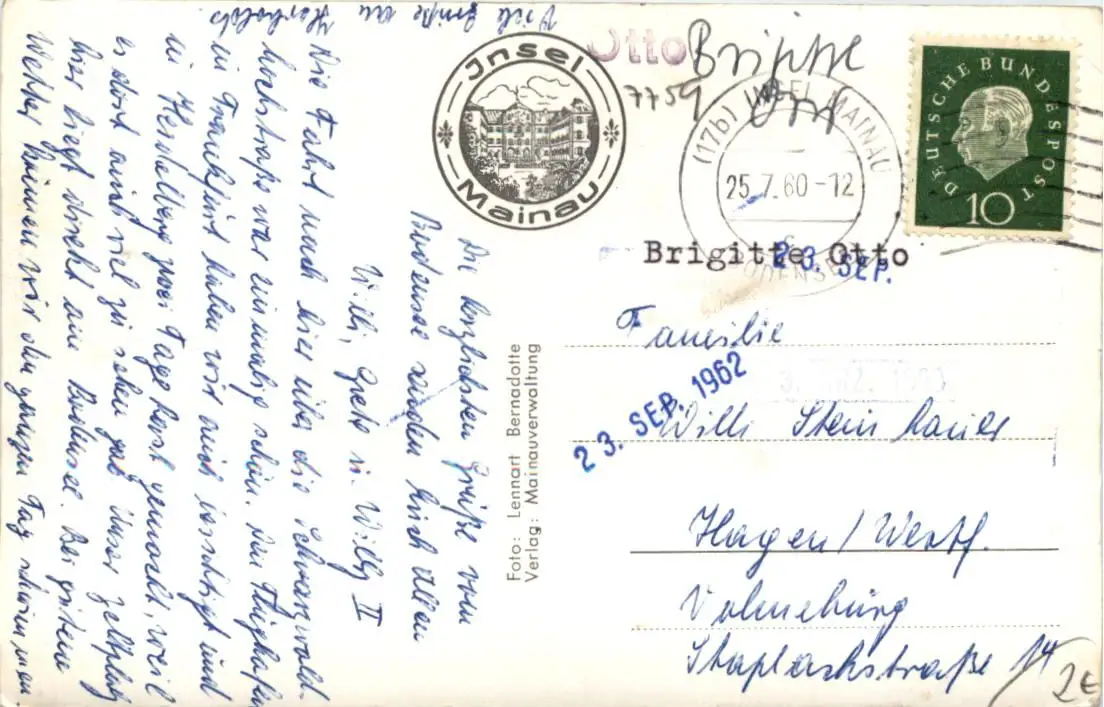 Die herzlichsten Grüße vom
Bodensee senden Euch allen
Willi, Grete u. Willy II
Die Fahrt nach hier über die Schwarzwald-
hochstraße war einmalig schön. Den Flughafen
in Frankfurt haben wir auch besichtigt und
in Heidelberg zwei Tage Rast gemacht, weil
es dort auch viel zu sehen gab. Unser Zeltplatz
hier liegt direkt am Bodensee. Bei gutem
Wetter können wir den ganzen Tag schwimmen
Viele Grüße an
Insel
Mainau
Otto
7759
(17b) INSEL MAINAU
25.7.60-12
c
BODENSEE
DEUTSCHE BUNDESPOST
10
Brigitte Otto
23. SEP.
23. SEP. 1962
Familie
Willi
Hagen/Westf.
14
2€
Foto: Lennart Bernadotte
Verlag: Mainauverwaltung